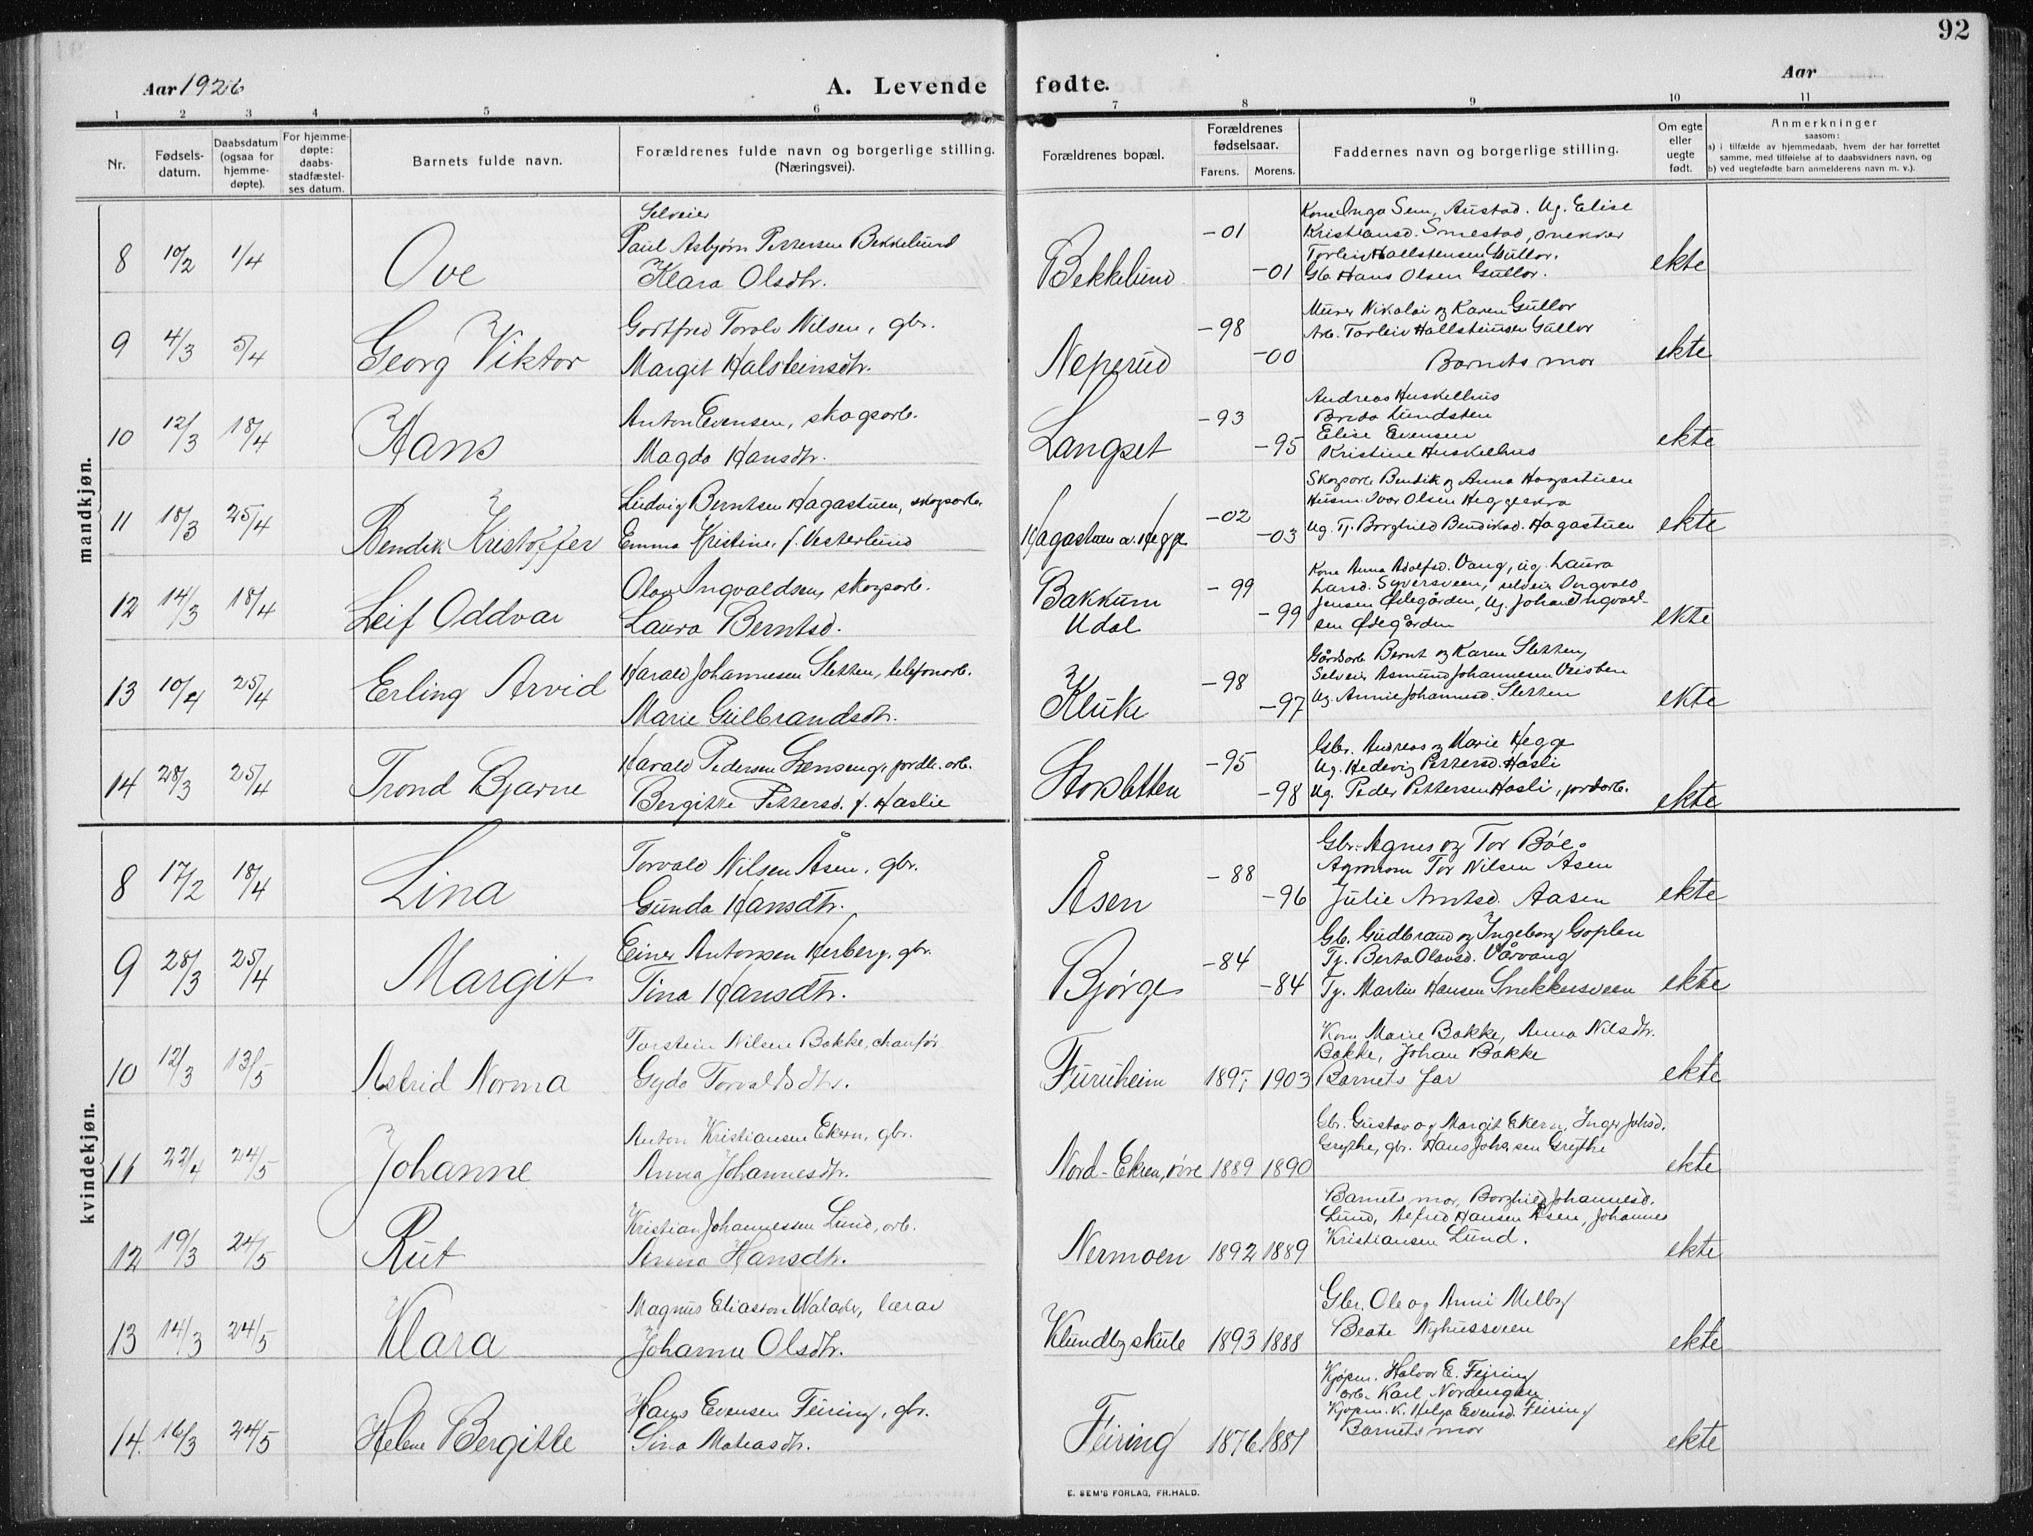 92
Aar 1926
A. Levende fødte.
Aar
1 2 3 4 5 6 7 8 9 10 11
Nr.
Fødsels-
datum.
Daabsdatum
(ogsaa for
hjemme-
døpte).
For hjemme-
døpte:
daabs-
stadfæstel-
ses datum.
Barnets fulde navn.
Forældrenes fulde navn og borgerlige stilling.
(Næringsvei).
Forældrenes bopæl.
Forældrenes
fødselsaar.
Farens. Morens.
Faddernes navn og borgerlige stilling.
Om egte
eller
uegte
født.
Anmerkninger
saasom:
a) i tilfælde av hjemmedaab, hvem der har forrettet
samme, med tilføielse af to daabsvidners navn, og
b) ved uegtefødte barn anmelderens navn m. v.).
mandkjøn.
8 10/2 1/4 Ove
Selveier
Paul Asbjørn Pettersen Bekkelund
Klara Olsdtr.
Bekkelund -01 -01
Kone Inga Sem, Austad. Ug. Elise
Kristiansd. Smestad,
Torleiv Hallstensen Gullor.
Gb. Hans Olsen Gullor.
ekte
9 4/3 5/4 Georg Viktor
Gottfred Torolv Nilsen, gbr.
Margit Halsteinsdtr.
Neperud -98 -00
Murer Nikolai og Karen Gullor
Arb. Torleiv Hallsteinsen Gullor
Barnets mor
ekte
10 12/3 18/4 Hans
Anton Evensen, skogsarb.
Magda Hansdtr.
Langset -93 -95
Andreas Huskelhus
Lundsten
Elise Evensen
Kristine Huskelhus
ekte
11 18/3 25/4 Bendik Kristoffer
Ludvig Berntsen Hagastuen, skogsarb.
Emma Kristine, f. Vesterlund
Hagastuen av. Hegge -02 -03
Skogsarb Bendik og Anna Hagastuen
Husm. Ivar Olsen
Ug. Tj. Borghild Bendiksd. Hagastuen
ekte
12 14/3 18/4 Leif Oddvar
Olav Ingvaldsen, skogsarb.
Laura Berntsd.
Bakkum
Udal
-99 -99
Kone Anna Adolfsd. Vang, ug. Laura
Larsd. Syversveen, selveier Ingvald
Jensen Ødegården, Ug. Johan Ingvald-
sen Ødegården
ekte
13 10/4 25/4 Erling Arvid
Harald Johannesen Sletten, telefonarb.
Marie Gulbrandsdtr.
Kluke -98 -97
Gårdsarb Bernt og Karen Sletten,
Selveier Asmund Johannesen
Ug. Annie Johannesd. Sletten
ekte
14 28/3 25/4 Trond Bjarne
Harald Pedersen Grenseng, jordb. arb.
Bergitte Pettersd. f. Haslie
Storsletten -95 -98
Gbr. Andreas og Marie Hegge
Ug. Hedevig Pettersd. Hasli
Ug. Peder Pettersen Hasli, jordarb.
ekte
kvindekjøn.
8 17/2 18/4 Lina
Torvald Nilsen Åsen, gbr.
Gunda Hansdtr.
Åsen -88 -96
Gbr. Agnes og Tor Bøe.
Agronom Tor Nilsen Asen
Julie Arntsd. Aasen
ekte
9 28/3 25/4 Margit
Einer Antonsen Kerberg, gbr.
Tina Hansdtr.
Bjørge -84 -84
Gb. Gudbrand og Ingeborg Goplen
Tj. Berta Olavsd. Vårvang
Tj. Martin Hansen Snekkersveen
ekte
10 12/3 13/5 Astrid Norma
Torstein Nilsen Bakke, chaufør
Gyda Torvaldsdtr.
Furuheim 1895, 1903
Kom Marie Bakke, Anna Nilsdtr.
Bakke, Johan Bakke
Barnets far
ekte
11 22/4 24/5 Johanne
Anton Kristiansen Ekern, gbr.
Anna Johannesdtr.
Nord-Ekern, øvre 1889 1890
Gbr. Gustav og Margit Ekern, Inger Johsd.
Grythe, gbr. Hans Johansen Grythe
ekte
12 19/3 24/5 Rut
Kristian Johannessen Lund, arb.
Anna Hansdtr.
Nermoen 1892 1889
Barnets mor, Borghild Johannesd.
Lund, Alfred Hansen Åsen, Johannes
Kristiansen Lund.
ekte
13 14/3 24/5 Klara
Magnus Eliasson Walader, lærar
Johanne Olsdtr.
Klundby skule 1893 1888
Gbr. Ole og Anni Melby
Beate Nyhussveen
ekte
14. 16/3 24/5 Helene Bergitte
Hans Evensen Feiring, gbr.
Sina Matiasdtr.
Feiring 1876 1881
Kjøpm. Halvor E. Feiring
arb. Karl Nordengen
Kjøpm. k. Helga Evensd. Feiring
Barnets mor
ekte
E. SEM'S FORLAG, FR.HALD.